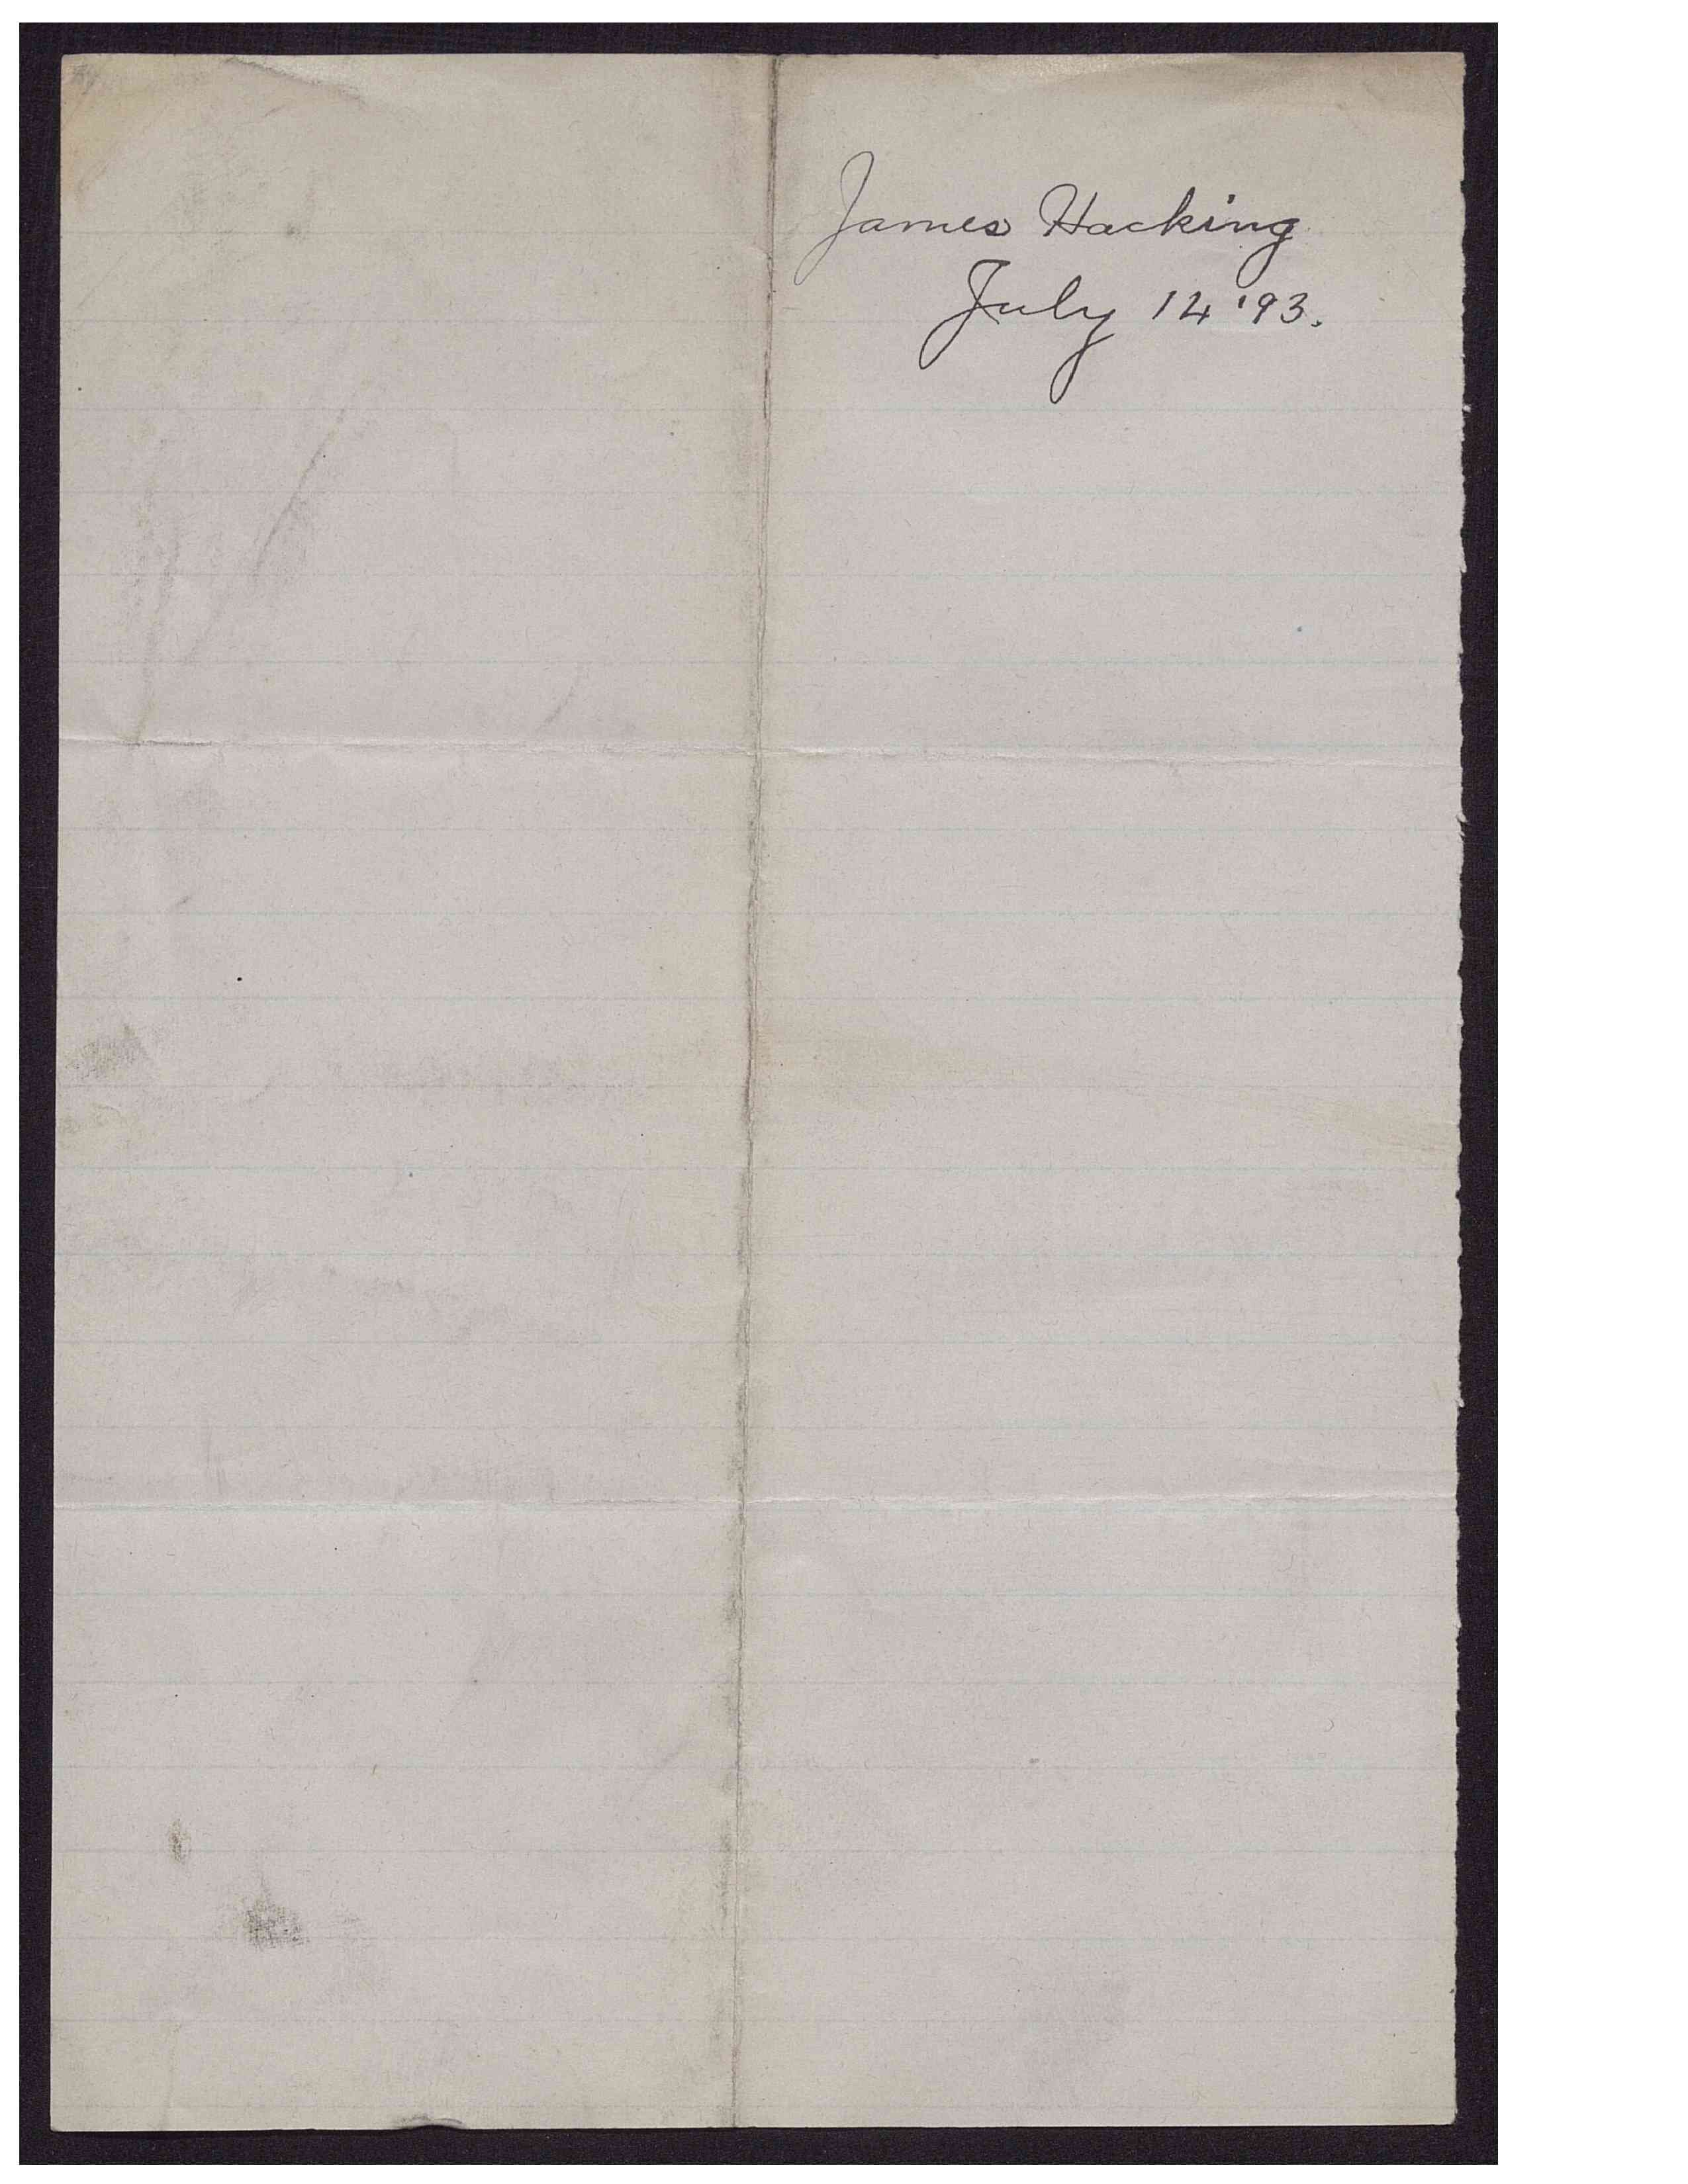 James Hacking
July 14 '93.